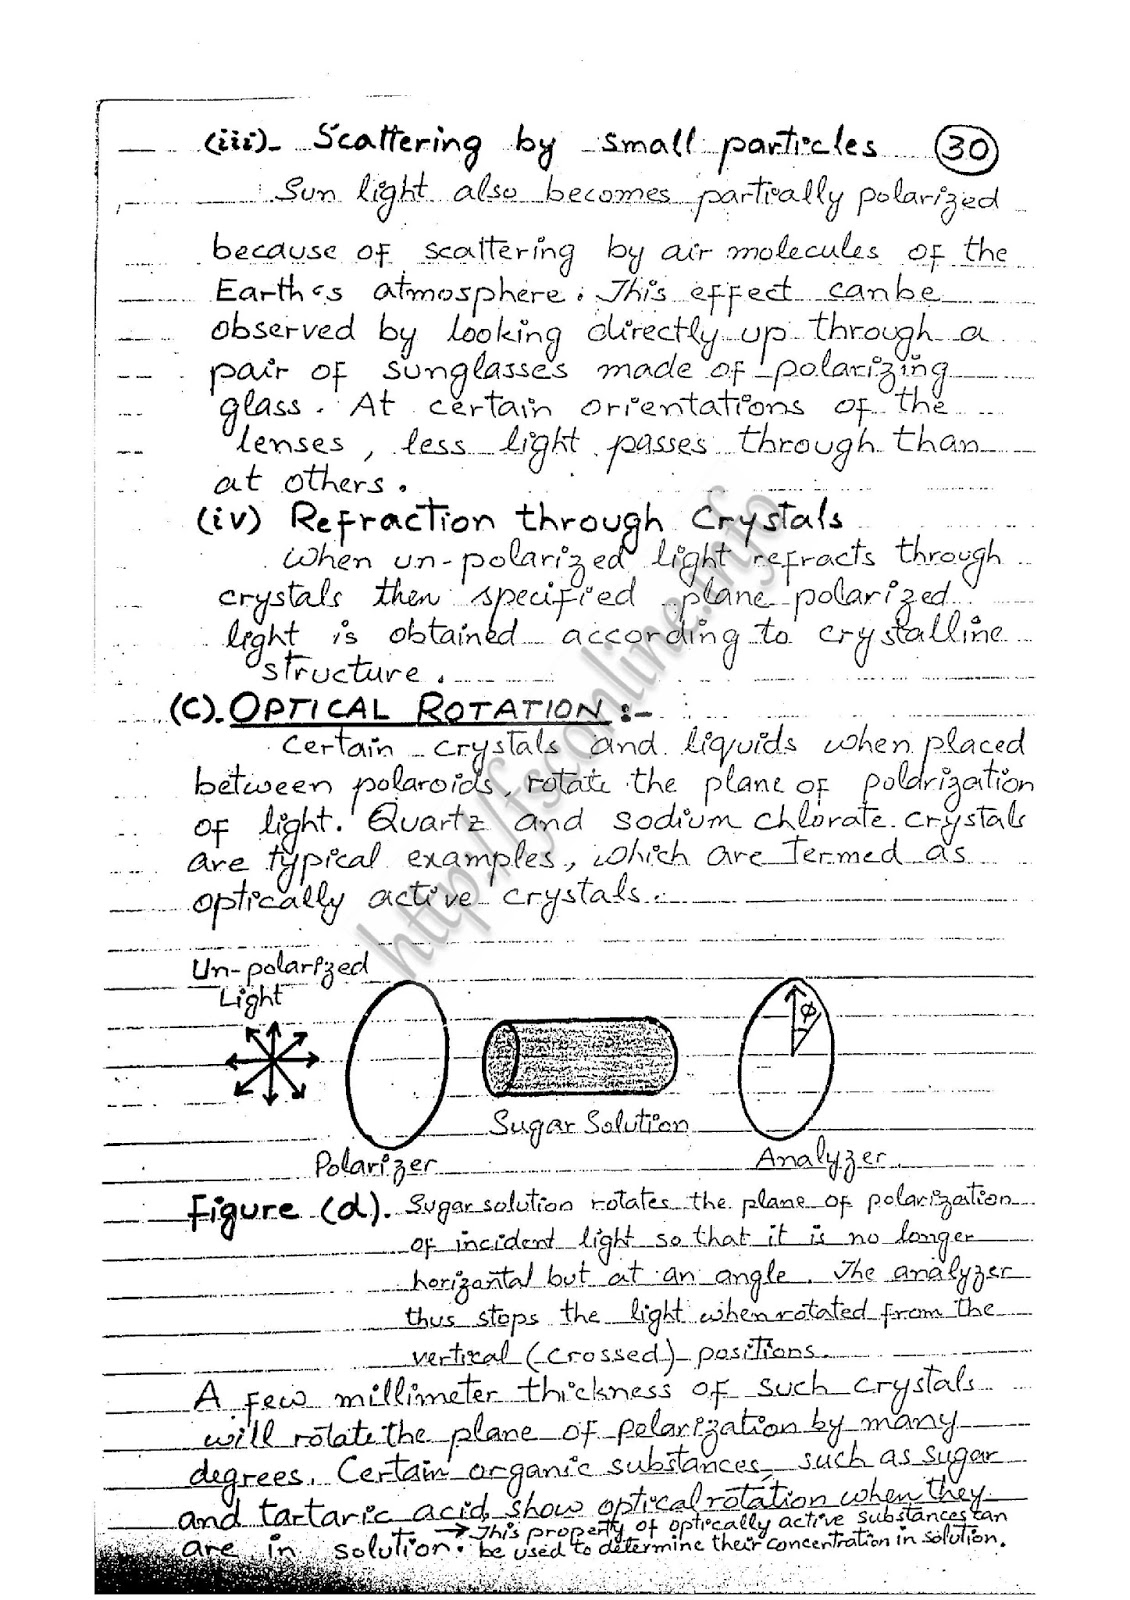 (iii)- Scattering by small particles (30)
Sun light also becomes partially polarized
because of scattering by air molecules of the
Earth's atmosphere. This effect can be
observed by looking directly up through a
pair of sunglasses made of polarizing
glass. At certain orientations of the
lenses, less light passes through than
at others.
(iv) Refraction through Crystals
When un-polarized light refracts through
crystals then specified plane polarized
light is obtained according to crystalline
structure.
(C). OPTICAL ROTATION :-
Certain crystals and liquids when placed
between polaroids, rotate the plane of polarization
of light. Quartz and sodium chlorate crystals
are typical examples, which are termed as
optically active crystals.
http://fsconline.info
Un-polarized
Light
φ
Sugar Solution
Polarizer
Analyzer
Figure (d). Sugar solution rotates the plane of polarization
of incident light so that it is no longer
horizantal but at an angle. The analyzer
thus stops the light when rotated from the
vertical (crossed) positions.
A few millimeter thickness of such crystals
will rotate the plane of polarization by many
degrees. Certain organic substances, such as sugar
and tartaric acid, show optical rotation when they
are in solution. → This property of optically active substances can
be used to determine their concentration in solution.